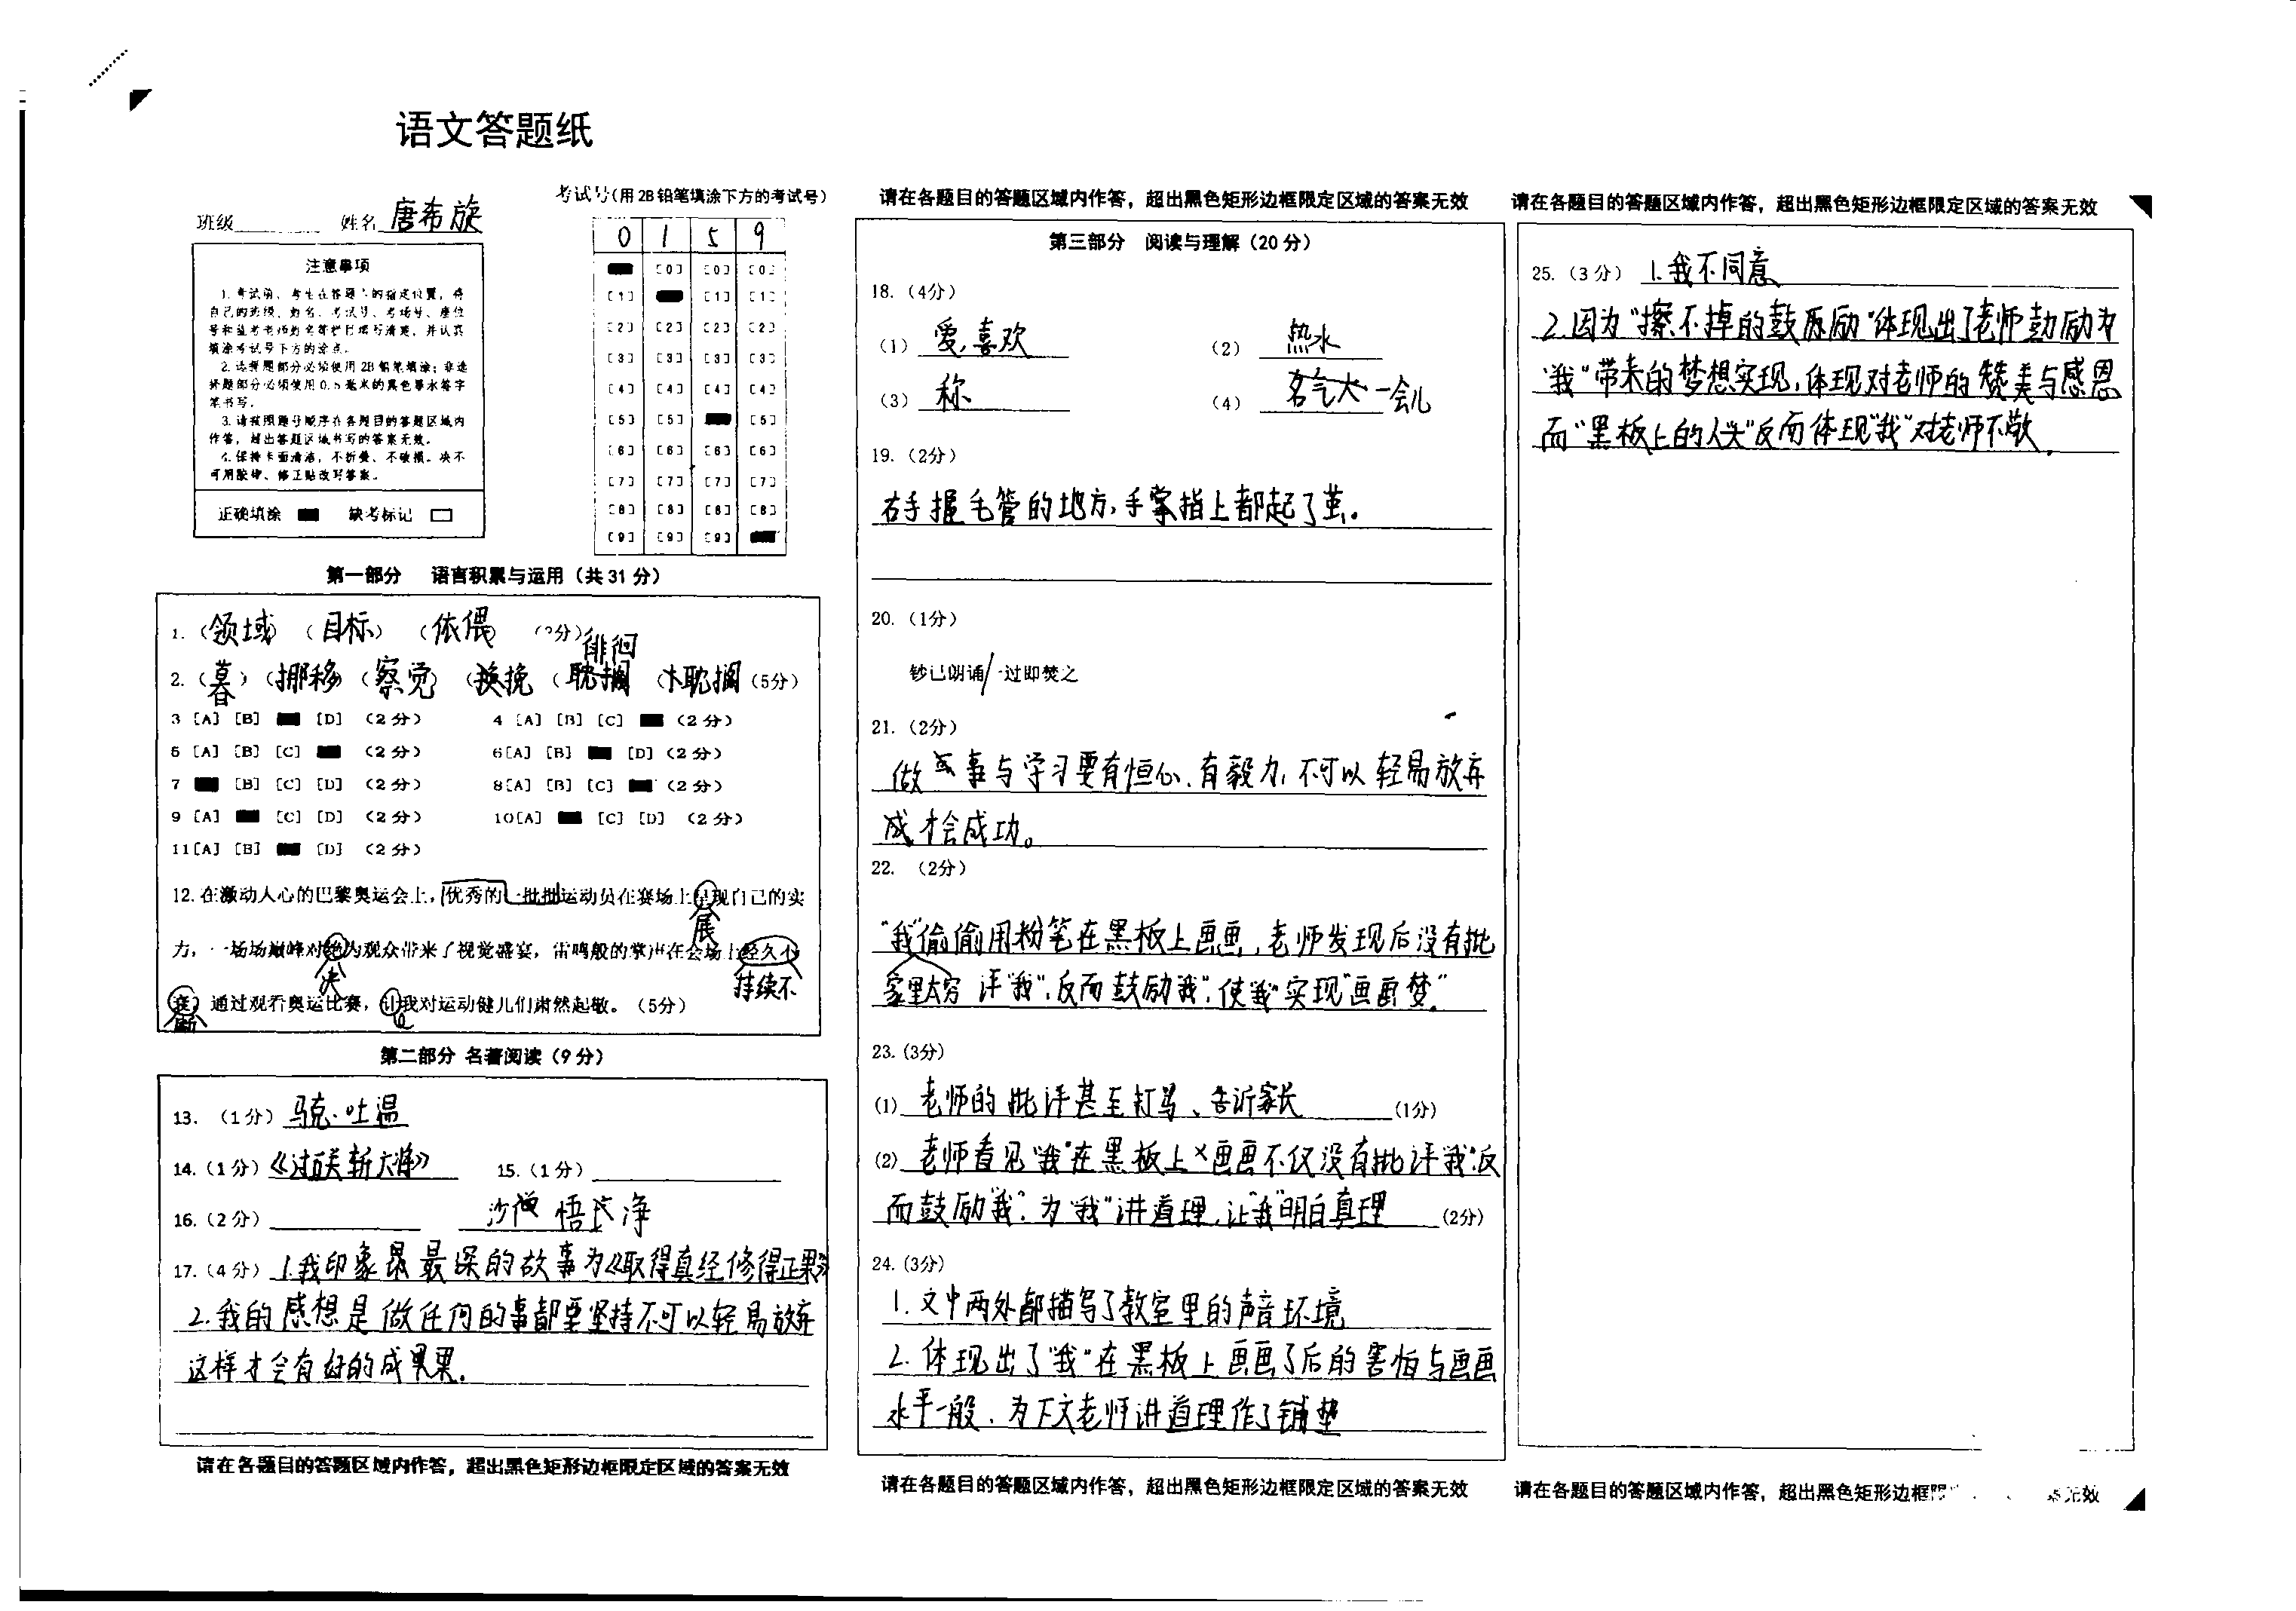 语文答题纸
班级 姓名 唐希旋
考试号(用2B铅笔填涂下方的考试号)
0 1 5 9
注意事项
1.考试前,考生在答题卡的指定位置,将
自己的班级、姓名、考试号、考场号、座位
号和监考老师姓名等栏目填写清楚,并认真
填涂考试号下方的涂点。
2.选择题部分必须使用2B铅笔填涂;非选
择题部分必须使用0.5毫米的黑色墨水签字
笔书写。
3.请按照题号顺序在各题目的答题区域内
作答,超出答题区域书写的答案无效。
4.保持卡面清洁,不折叠、不破损。决不
可用胶带、修正贴改写答案。
正确填涂 缺考标记
[0] [0] [0]
[1] [1] [1]
[2] [2] [2] [2]
[3] [3] [3] [3]
[4] [4] [4] [4]
[5] [5] [5]
[6] [6] [6] [6]
[7] [7] [7] [7]
[8] [8] [8] [8]
[9] [9] [9]
第一部分 语言积累与运用(共31分)
1.(领域)(目标)(依偎)(2分)
徘徊
2.(暮)(挪移)(察觉)(挽)(耽搁)(耽搁(5分)
3 [A] [B] [D] (2分) 4 [A] [B] [C] (2分)
5 [A] [B] [C] (2分) 6[A] [B] [D](2分)
7 [B] [C] [D] (2分) 8[A] [B] [C] (2分)
9 [A] [C] [D] (2分) 10[A] [C] [D] (2分)
11[A] [B] [D] (2分)
12.在激动人心的巴黎奥运会上,优秀的一批批运动员在赛场上呈现自己的实
展
力,一场场巅峰对绝为观众带来了视觉盛宴,雷鸣般的掌声在会场上经久不
决 持续不
衰,通过观看奥运比赛,让我对运动健儿们肃然起敬。(5分)
第二部分 名著阅读(9分)
13. (1分) 马克·吐温
14.(1分)《过五关斩六将》 15.(1分)
16.(2分) 沙 悟 净
17.(4分) 1.我印象最深的故事为《取得真经修得正果》
2.我的感想是做任何的事都要坚持不可以轻易放弃
这样才会有好的成果.
请在各题目的答题区域内作答,超出黑色矩形边框限定区域的答案无效
请在各题目的答题区域内作答,超出黑色矩形边框限定区域的答案无效
第三部分 阅读与理解(20分)
18.(4分)
(1) 爱,喜欢 (2) 热水
(3) 称 (4) 名气大 一会儿
19.(2分)
右手握毛管的地方,手掌指上都起了茧.
20.(1分)
钞已朗诵/一过即焚之
21.(2分)
做事与学习要有恒心、有毅力,不可以轻易放弃
才会成功。
22. (2分)
“我”偷偷用粉笔在黑板上画画,老师发现后没有批
家里太穷 评“我”,反而鼓励“我”,使“我”实现“画画梦”.
23.(3分)
(1) 老师的批评甚至打骂、告诉家长 (1分)
(2) 老师看见“我”在黑板上画画不仅没有批评“我”反
而鼓励“我”.为“我”讲道理,让“我”明白真理 (2分)
24.(3分)
1.文中两处都描写了教室里的声音环境
2.体现出了“我”在黑板上画画了后的害怕与画画
水平一般、为下文老师讲道理作了铺垫
请在各题目的答题区域内作答,超出黑色矩形边框限定区域的答案无效
请在各题目的答题区域内作答,超出黑色矩形边框限定区域的答案无效
25.(3分) 1.我不同意
2.因为“擦不掉的鼓励”体现出了老师鼓励为
“我”带来的梦想实现,体现对老师的赞美与感恩
而“黑板上的人头”反而体现“我”对老师不敬.
请在各题目的答题区域内作答,超出黑色矩形边框限 案无效